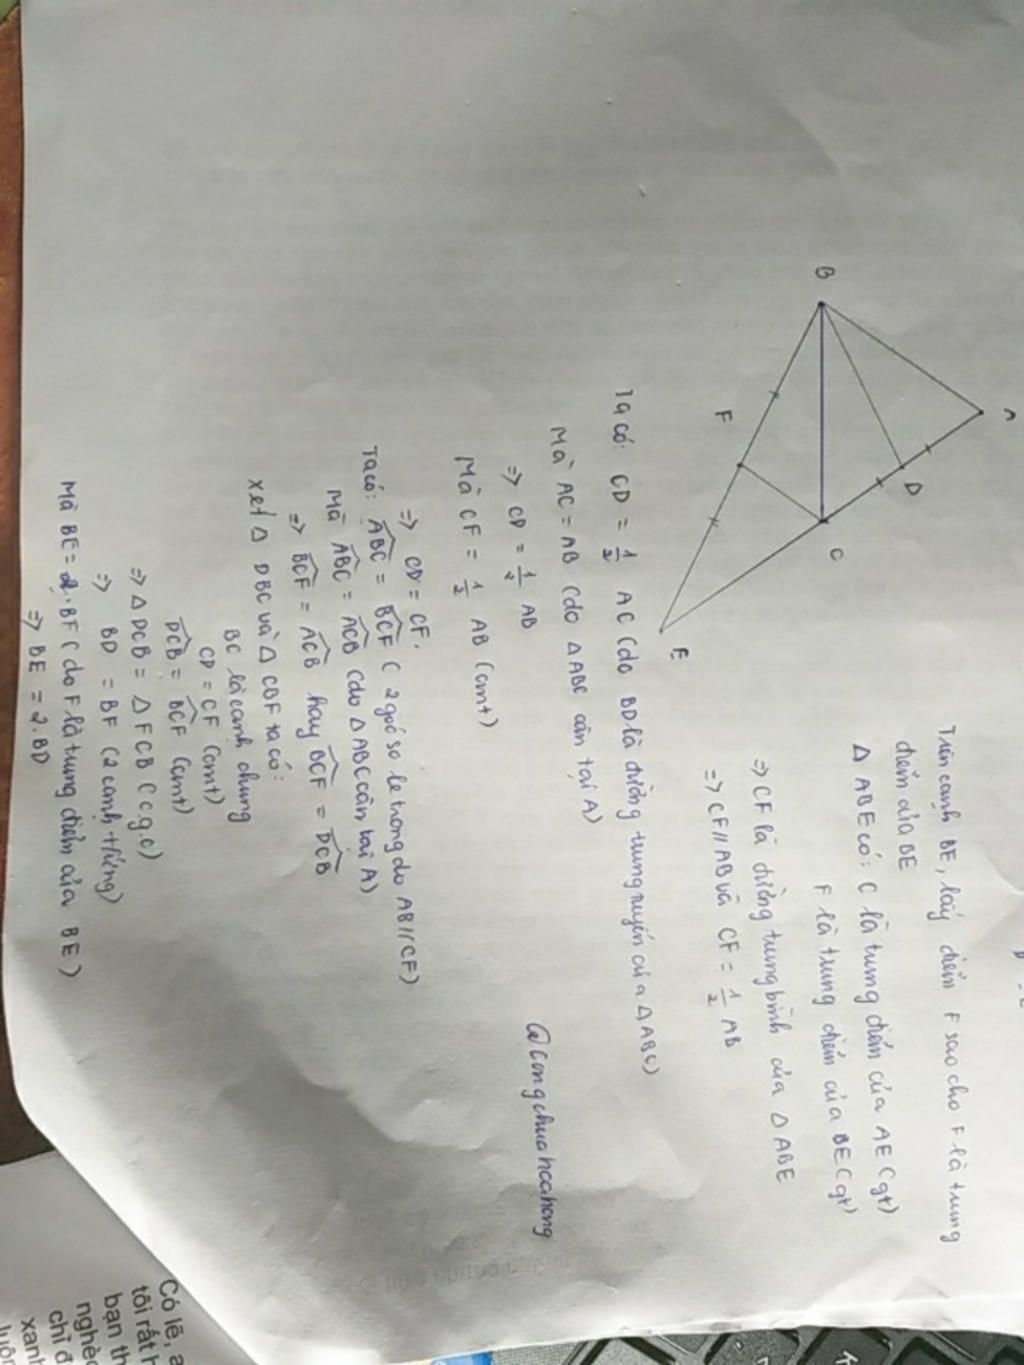 A
B
D
C
F
E
Trên cạnh BE, lấy điểm F sao cho F là trung
điểm của BE
Δ ABE có: C là trung điểm của AE (gt)
F là trung điểm của BE (gt)
=> CF là đường trung bình của Δ ABE
=> CF // AB và CF = 1/2 AB
Ta có: CD = 1/2 AC (do BD là đường trung tuyến của Δ ABC)
Mà AC = AB (do Δ ABC cân tại A)
=> CD = 1/2 AB
Mà CF = 1/2 AB (cmt)
@congchuahoahong
=> CD = CF.
Ta có: ABC = BCF (2 góc so le trong do AB // CF)
Mà ABC = ACB (do Δ ABC cân tại A)
=> BCF = ACB hay BCF = DCB
xet Δ DBC và Δ CBF ta có:
BC là cạnh chung
CD = CF (cmt)
DCB = BCF (cmt)
=> Δ DCB = Δ FCB (c.g.c)
=> BD = BF (2 cạnh t/ứng)
Mà BE = 2.BF (do F là trung điểm của BE)
=> BE = 2.BD
Có lẽ, a
tôi rất h
bạn th
nghèo
chỉ đ
xanh
luôn